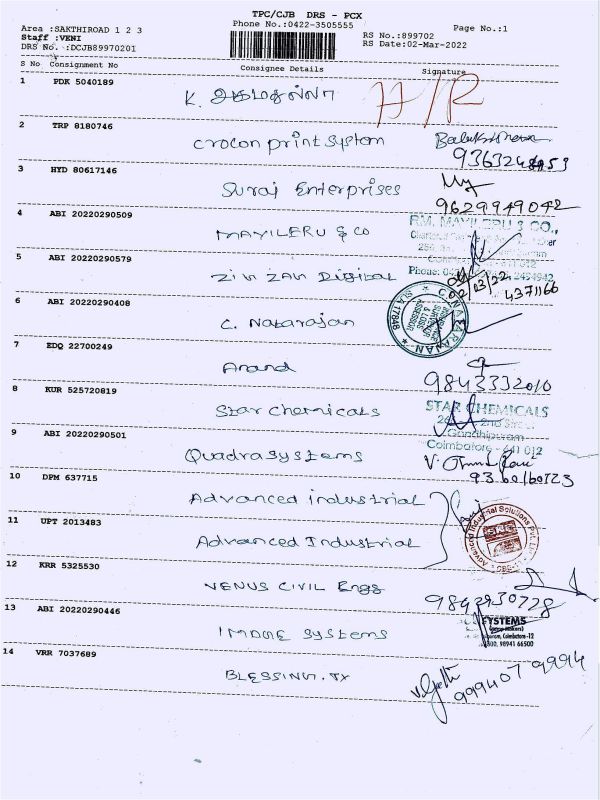 TPC/CJB DRS - PCX
Area :SAKTHIROAD 1 2 3
Phone No.:0422-3505555
Page No.:1
Staff :VENI
RS No.:899702
DRS No. :DCJB89970201
RS Date:02-Mar-2022
S No Consignment No Consignee Details Signature
1 PDK 5040189
K.
A/R
2 TRP 8180746
crocon print system
3 HYD 80617146
Suraj Enterprises
9629949042
4 ABI 20220290509
MAYILERU & CO
RM. MAYILERU & CO.,
5 ABI 220290579
Zin Zan Digital
2/03/22
4371166
6 ABI 20220290408
C. Natarajan
C. NATARAJAN
SLA 17846
7 EDQ 22700249
Anand
9843332010
8 KUR 525720819
Star chemicals
STAR CHEMICALS
2nd Street
Gandhipuram
Coimbatore - 641 012
9 ABI 20220290501
Quadrasystems
10 DPM 637715
Advanced industrial
11 UPT 2013483
Advanced Industrial
Advanced Industrial Solutions Pvt. Ltd.
12 KRR 5325530
VENUS CIVIL Engg
9842930778
13 ABI 20220290446
Systems
SYSTEMS
Coimbatore -12
98941 66500
14 VRR 7037689
BLESSING. TX
999407 9994